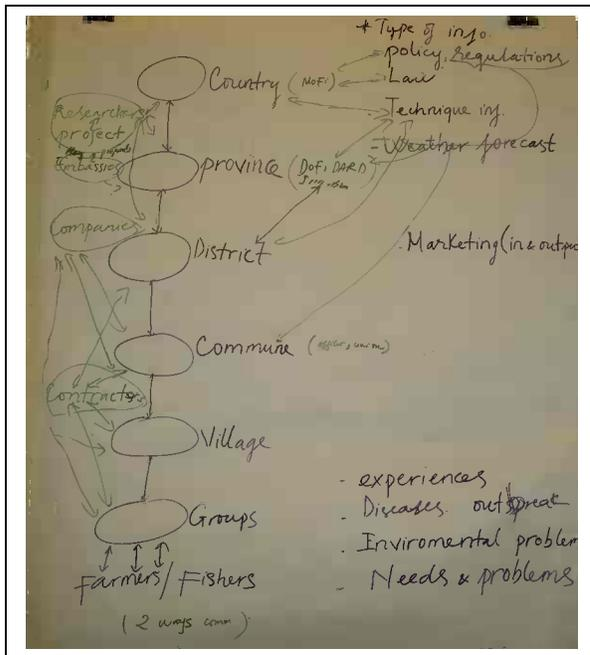 * Type of info.
policy, regulations
Law
Technique inf.
- Weather forecast
Country (MoFi)
Researcher
project
Embassies
province (DoFi, DARD
Companies
District
. Marketing (in & outpu
Commune
Contractors
Village
Groups
Farmers / Fishers
(2 ways comm)
- experiences
. Diseases outbreak
. Inviromental problem
. Needs & problems